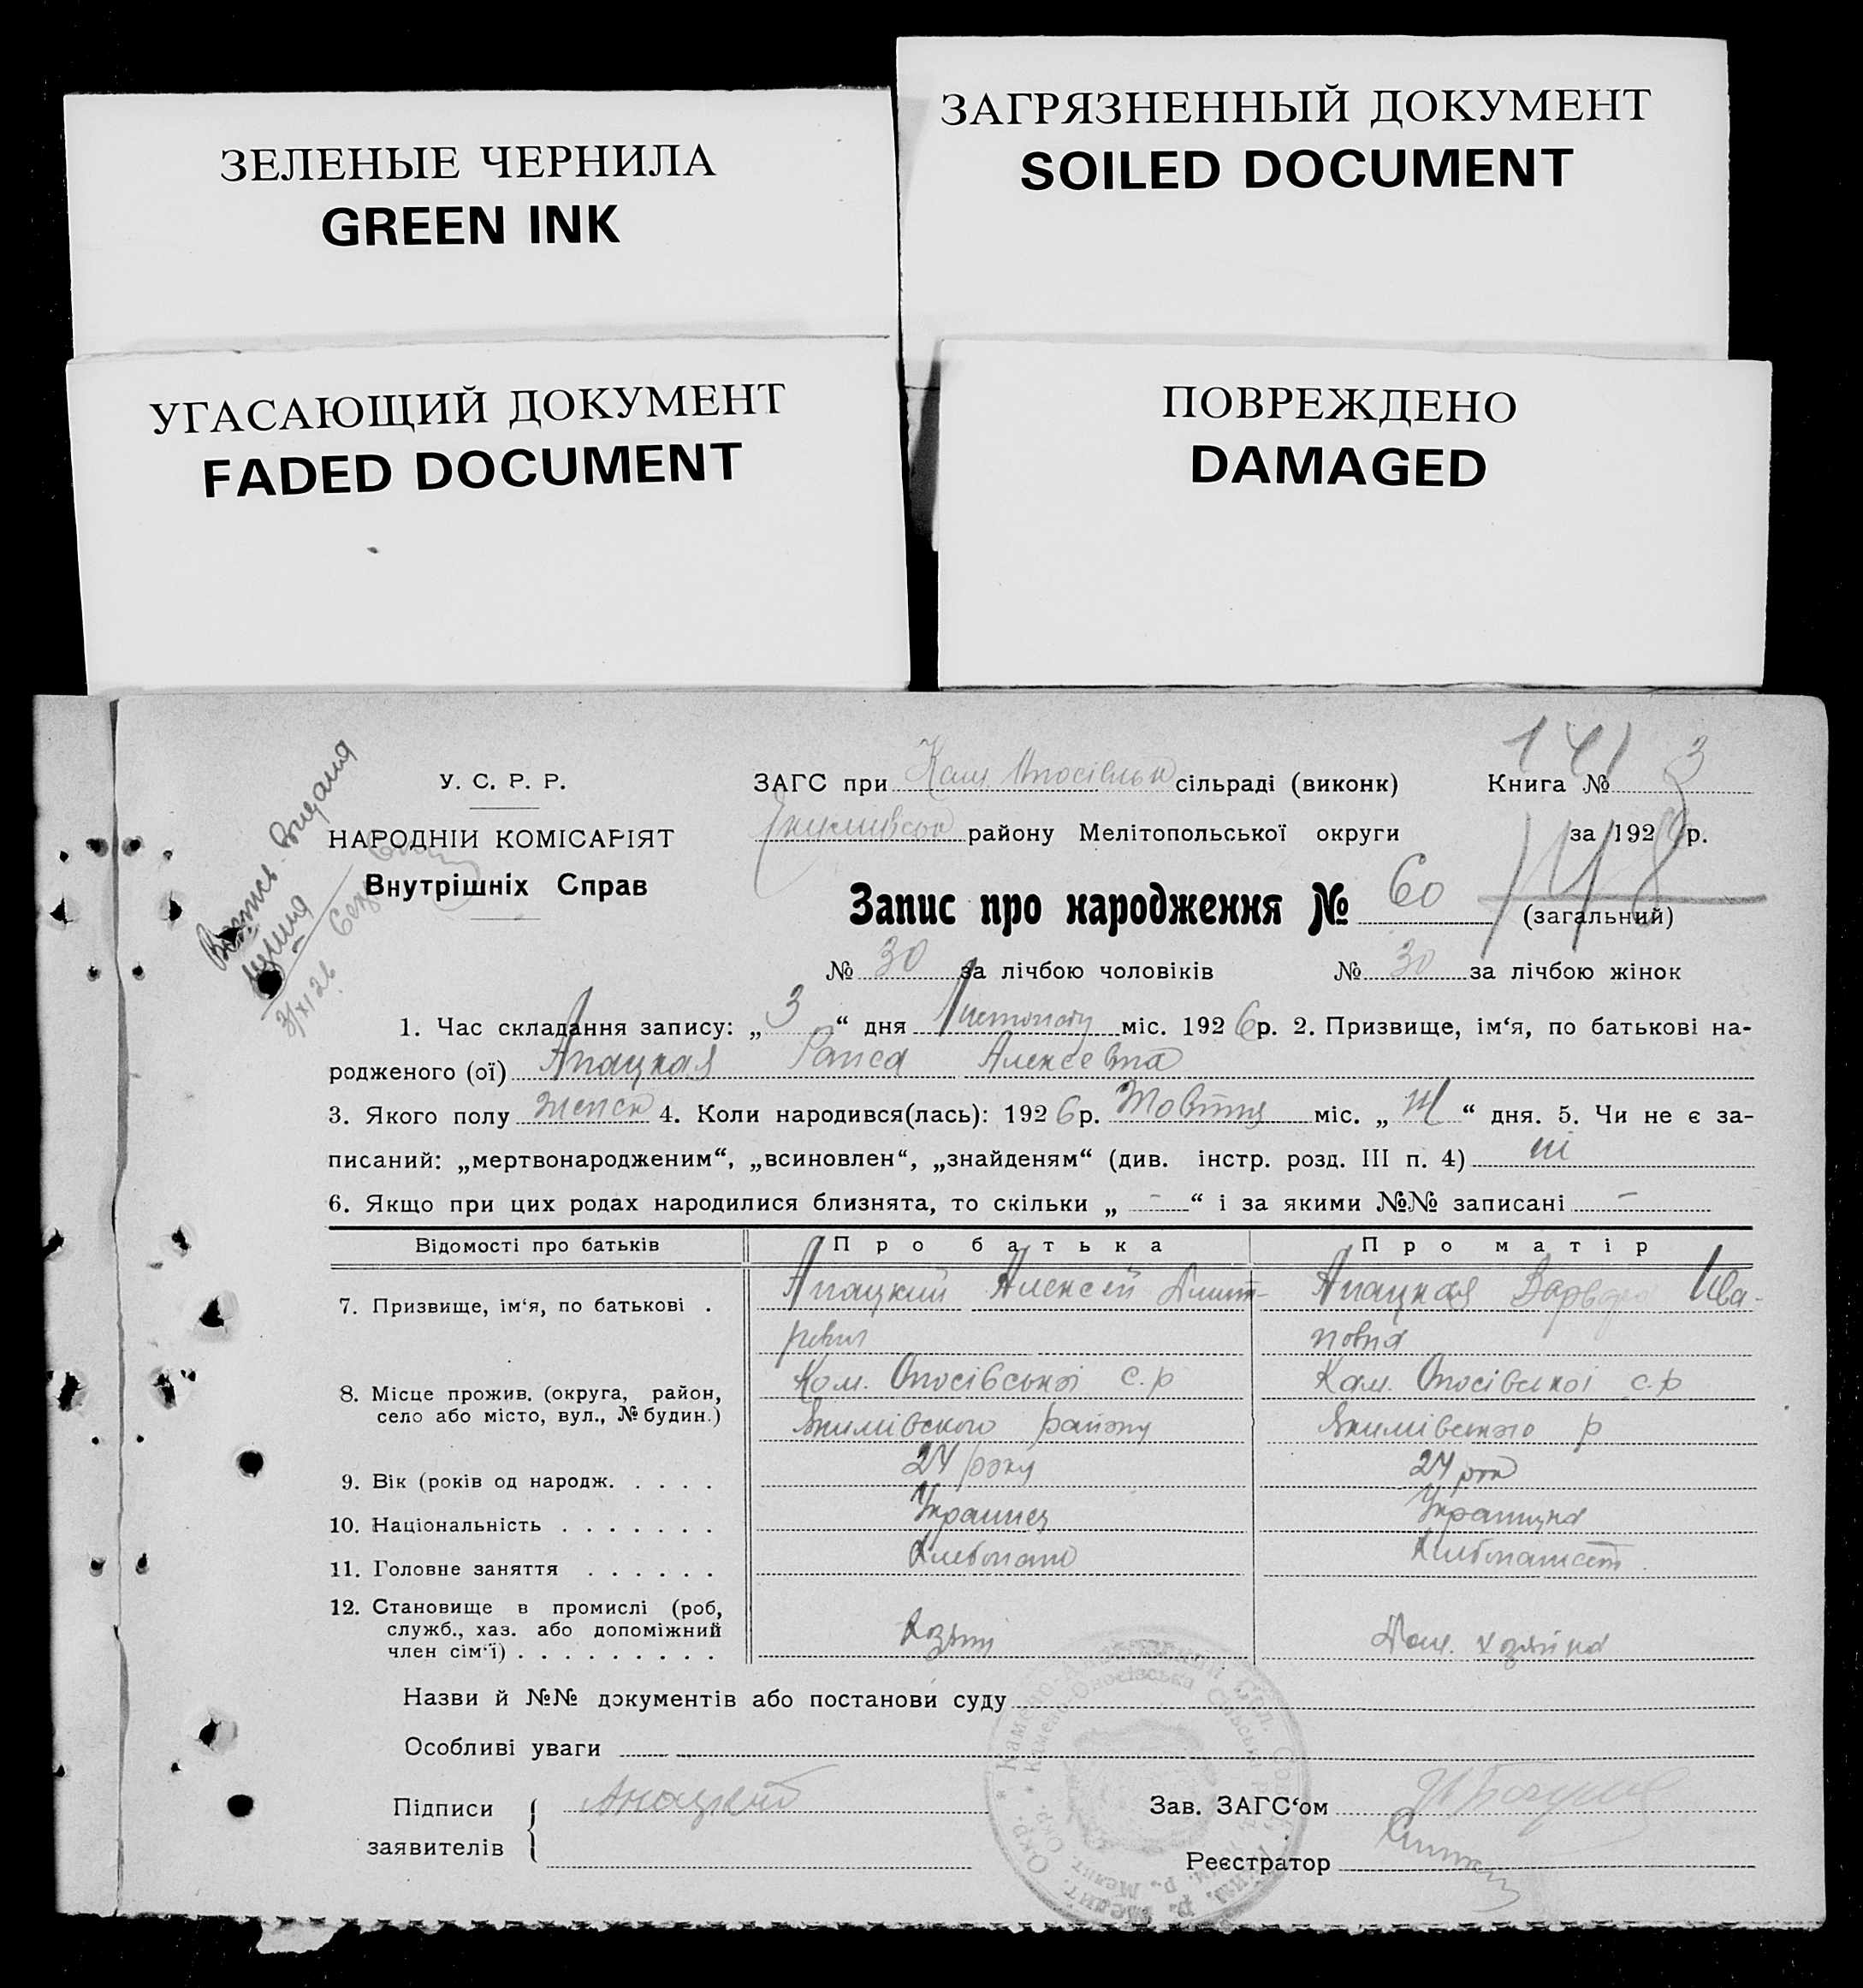 ЗЕЛЕНЫЕ ЧЕРНИЛА
GREEN INK
ЗАГРЯЗНЕННЫЙ ДОКУМЕНТ
SOILED DOCUMENT
УГАСАЮЩИЙ ДОКУМЕНТ
FADED DOCUMENT
ПОВРЕЖДЕНО
DAMAGED
У. С. Р. Р.
НАРОДНІЙ КОМІСАРІЯТ
Внутрішніх Справ
141
ЗАГС при Кам. сільраді (виконк) Книга № 3
району Мелітопольської округи за 192 р.
Запис про народження № 60
(загальний)
№ 30 за лічбою чоловіків № 30 за лічбою жінок
1. Час складання запису: „ 3 “ дня Листопаду міс. 1926 р. 2. Призвище, ім‘я, по батькові на-
родженого (ої) Апацкая Раиса Алексевна
3. Якого полу женск 4. Коли народився(лась): 1926 р. Жовтня міс. „ “ дня. 5. Чи не є за-
писаний: „мертвонародженим“, „всиновлен“, „знайденям“ (див. інстр. розд. III п. 4) ні
6. Якщо при цих родах народилися близнята, то скільки „ - “ і за якими №№ записані -
Відомості про батьків Про батька Про матір
7. Призвище, ім‘я, по батькові . Апацкий Алексей Дмит- Апацкая Варвара Ива-
ревич новна
8. Місце прожив. (округа, район, Кам. Опосівської с.р Кам. Опосівської с.р
село або місто, вул., № будин.) Якимівского району Якимівського р
9. Вік (років од народж. . . . . 24 року 24 рок
10. Національність . . . . . . . Украинец Украинка
11. Головне заняття . . . . . . Хлебопаш
12. Становище в промислі (роб,
служб., хаз. або допоміжний
член сім‘ї) . . . . . . . . . Дом. хозяйка
Назви й №№ документів або постанови суду
Особливі уваги
Підписи Апацкий Зав. ЗАГС‘ом
заявителів
Реєстратор